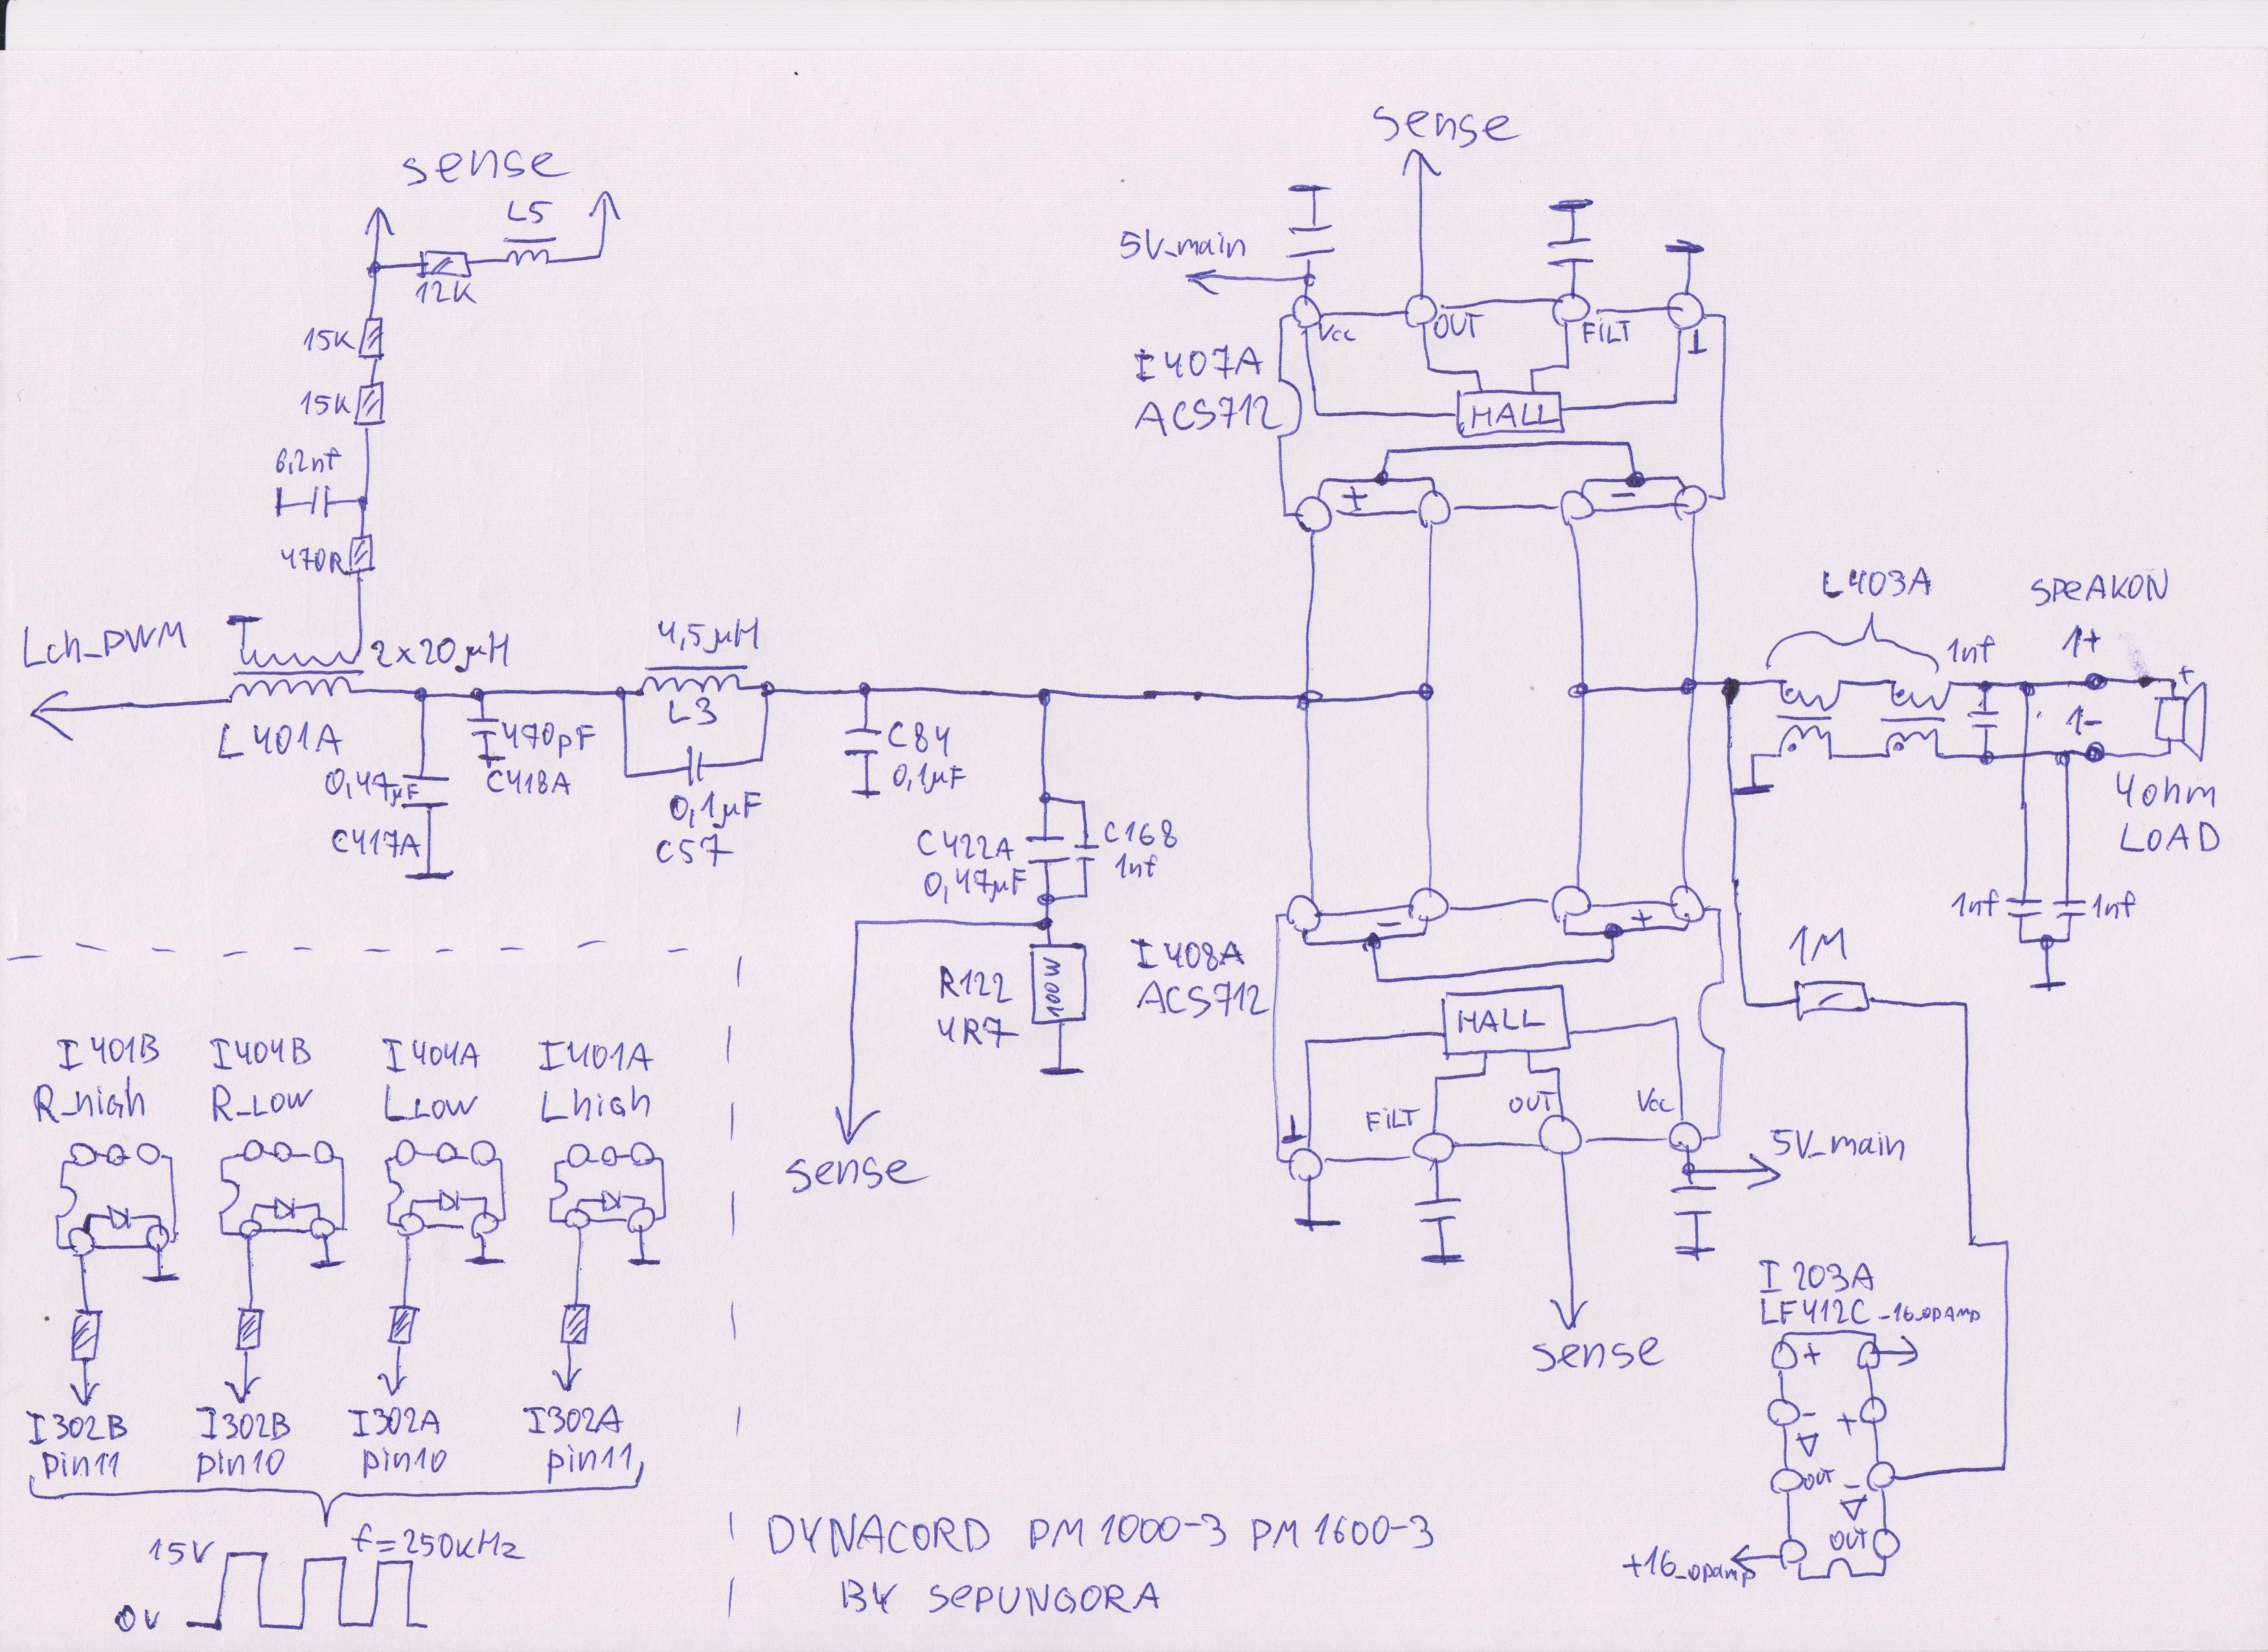 sense
L5
12K
15K
15K
6,2nf
470R
Lch_PWM
2x20µH
L401A
0,47µF
C417A
470pF
C418A
4,5µH
L3
0,1µF
C57
C84
0,1µF
C422A
0,47µF
C168
1nf
R122
4R7
100W
sense
sense
5V_main
Vcc
OUT
FILT
⊥
I407A
ACS712
HALL
+
-
-
+
I408A
ACS712
HALL
⊥
FILT
OUT
Vcc
5V_main
sense
L403A
1nf
SPEAKON
1+
1-
+
4ohm
LOAD
1nf
1nf
1M
I203A
LF412C
-16_opamp
+
-
+
OUT
-
OUT
+16_opamp
I401B
R_high
I404B
R_Low
I404A
L_Low
I401A
L high
I302B
pin11
I302B
pin10
I302A
pin10
I302A
pin11
15V
f=250kHz
0v
DYNACORD PM1000-3 PM1600-3
BY SEPUNGORA